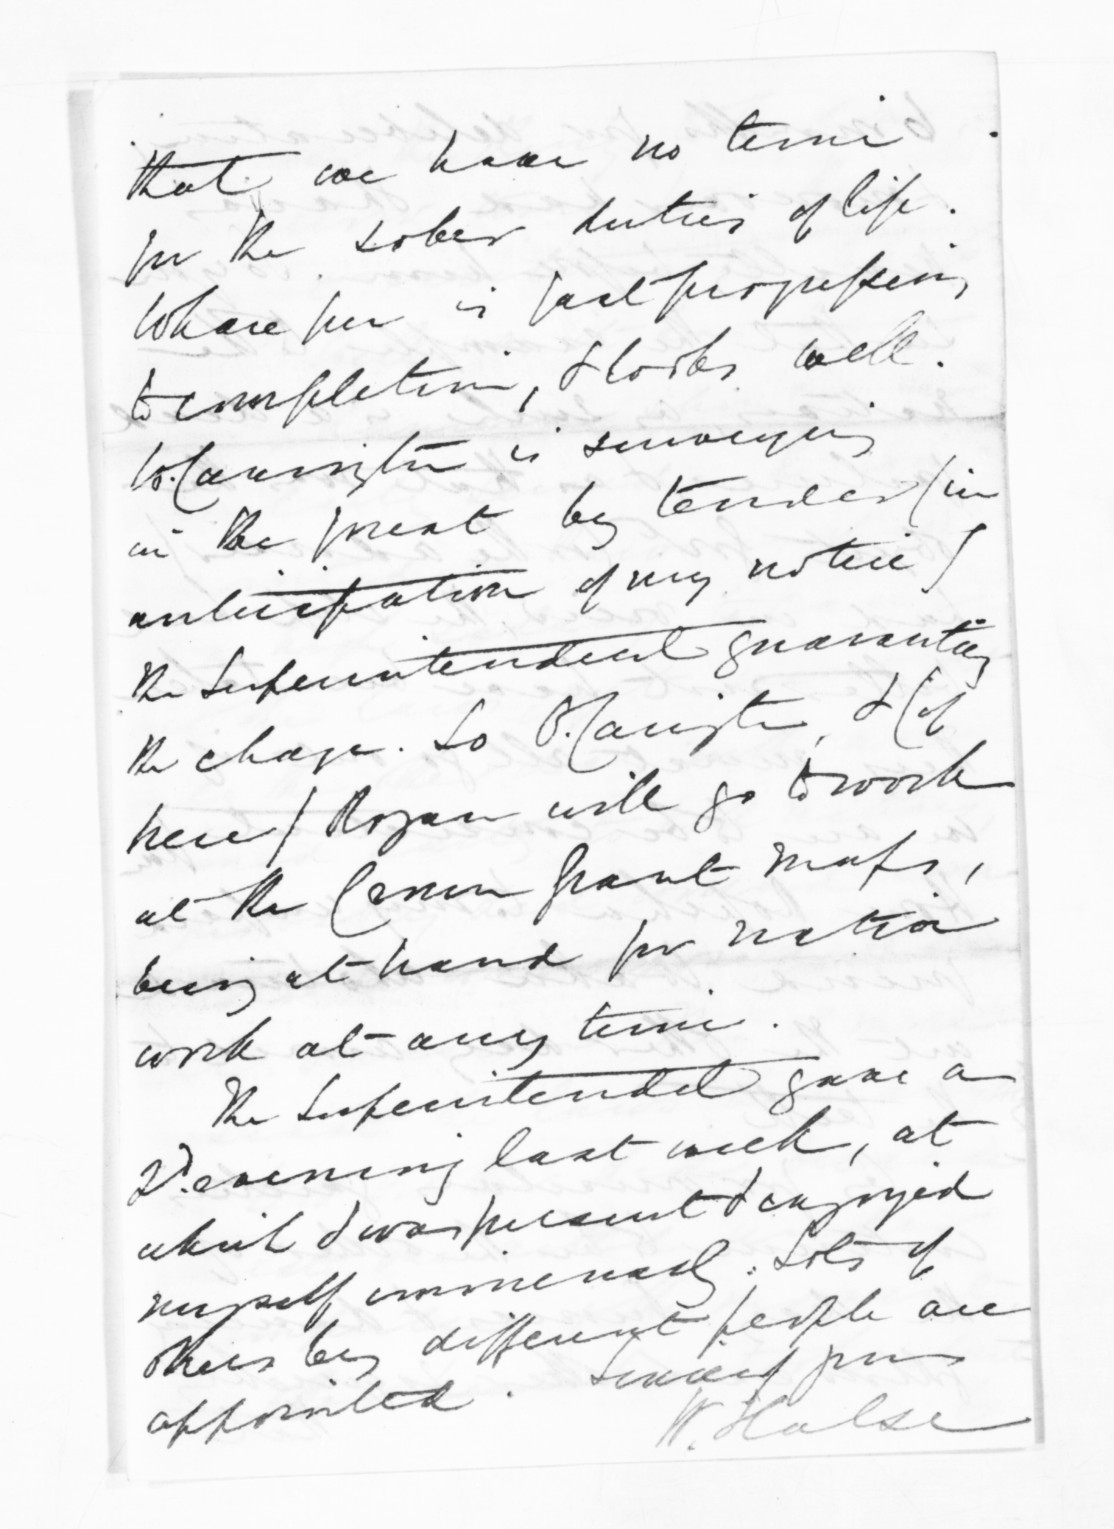 that we have no time
for the sober duties of life.
Wharf is fast progressing
to completion, & looks well.
O. Carrington is surveying
in the great by tender (in
anticipation of my notice)
the Superintendent guaranteeing
the charge. So O. Carrington, & (if
here) Rogan will go to work
at the Crown Grant Maps,
being at hand for native
work at any time.
The Superintendent gave a
evening last week, at
which I was present & enjoyed
myself immensely. Lots of
others by different people are
appointed. Sincerely yours
W. Halse